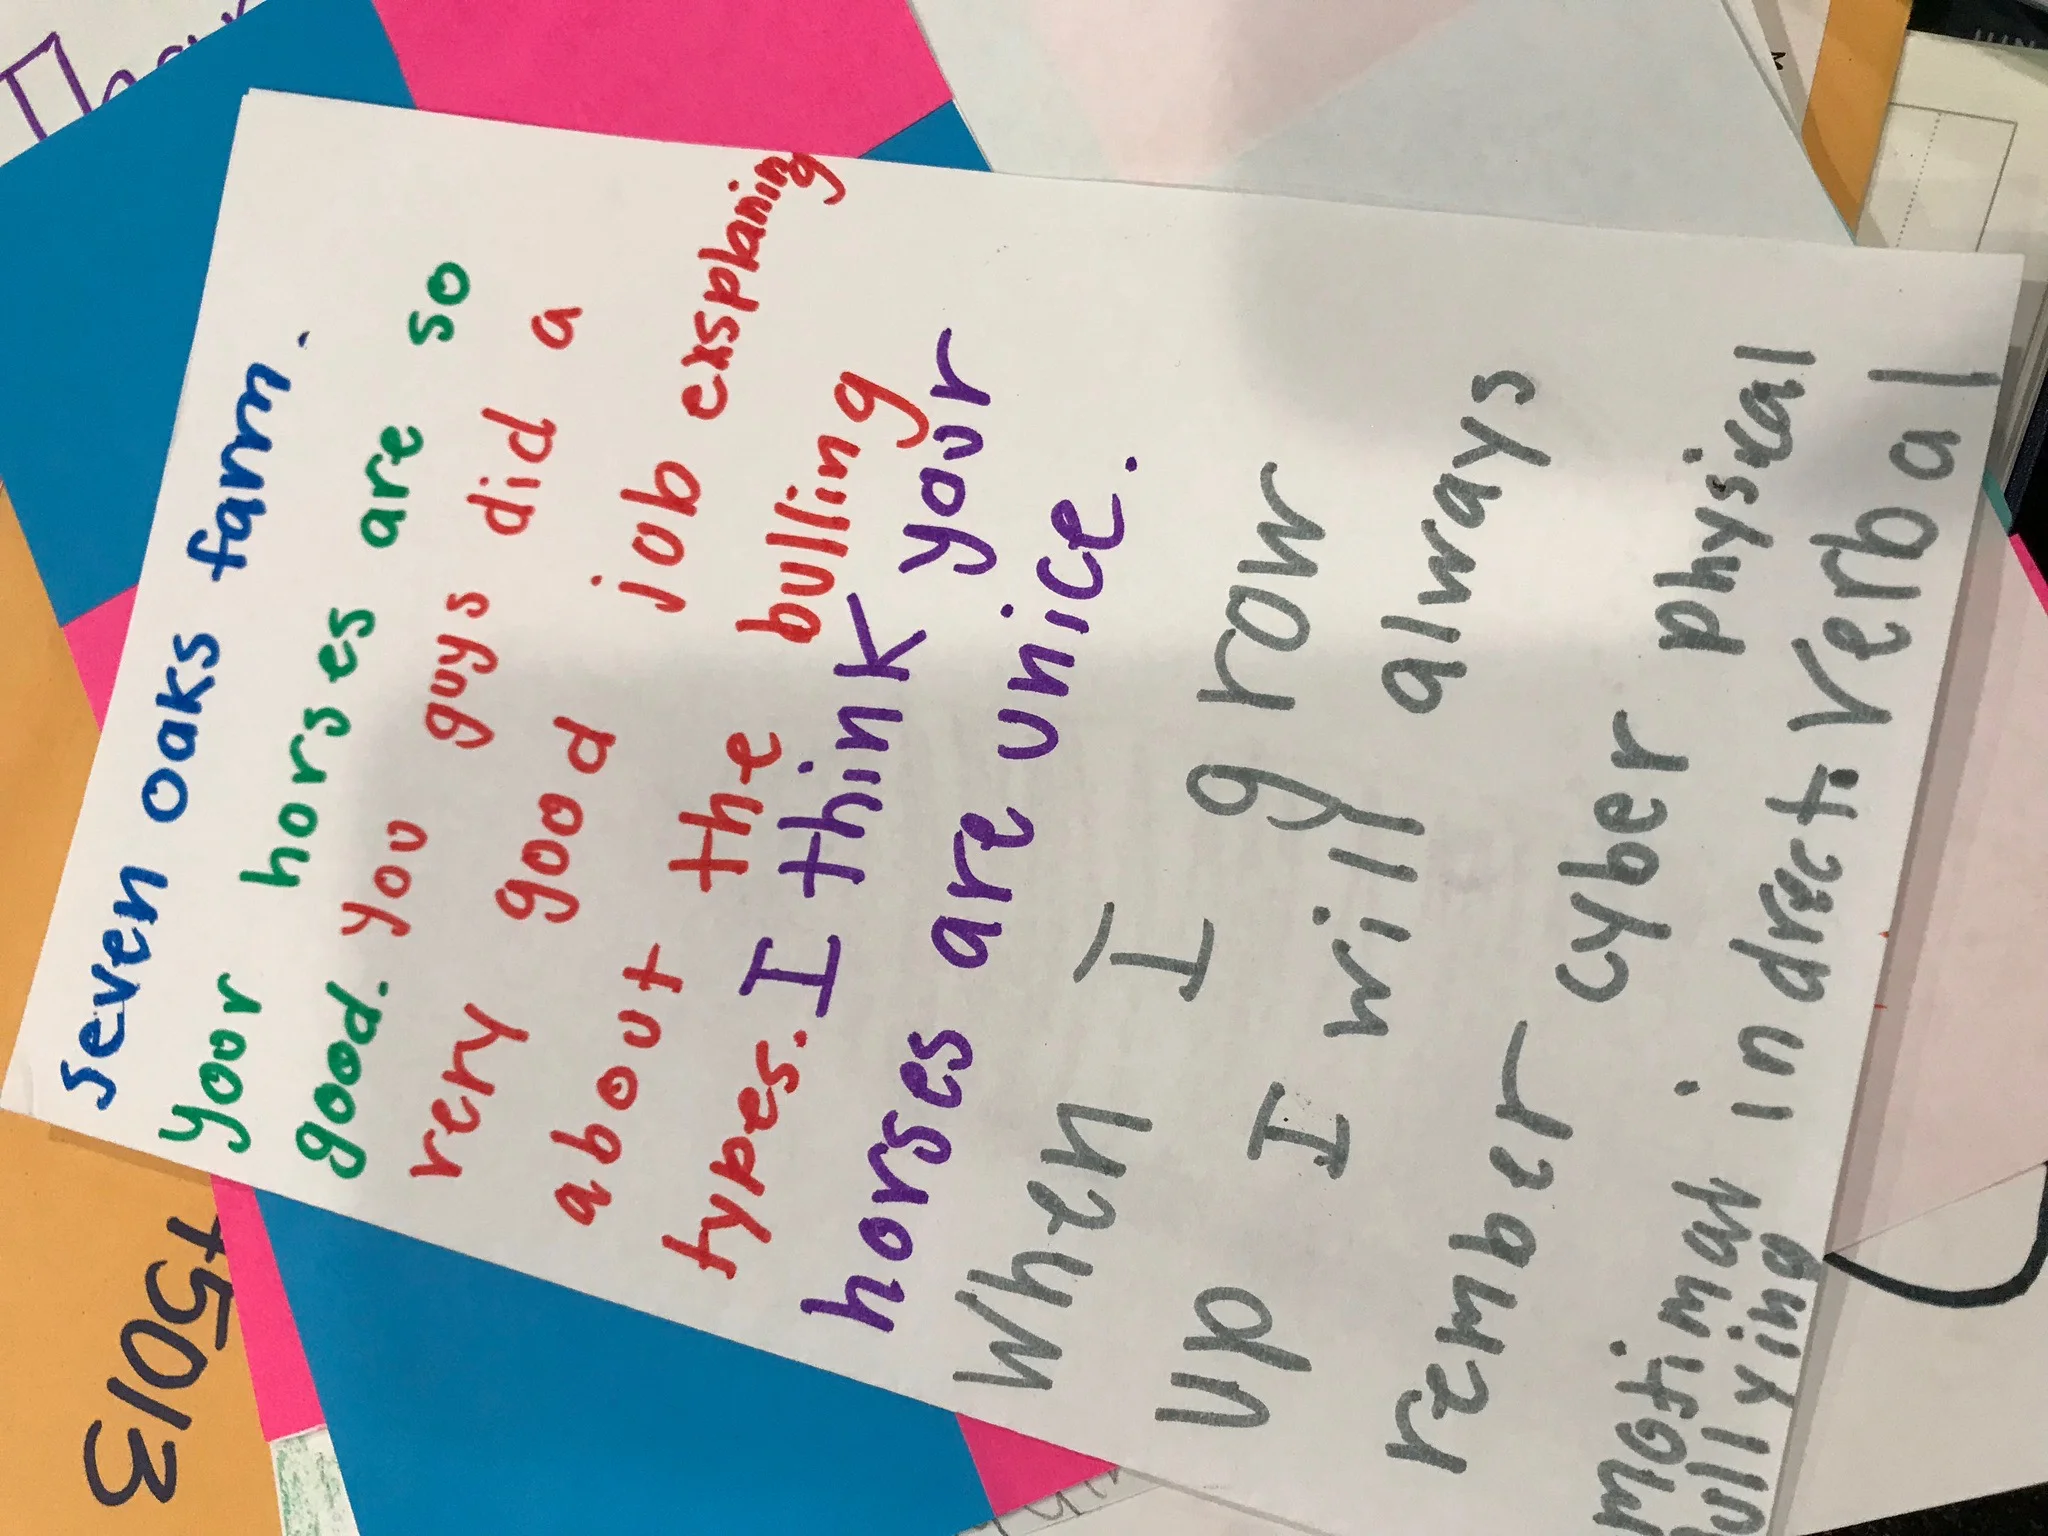 seven oaks farm.
your horses are so
good. you guys did a
very good job exsplaning
about the bulling
types. I think your
horses are unice.
When I grow
up I will always
rember cyber physical
indrect. Verbal
ullying
3013